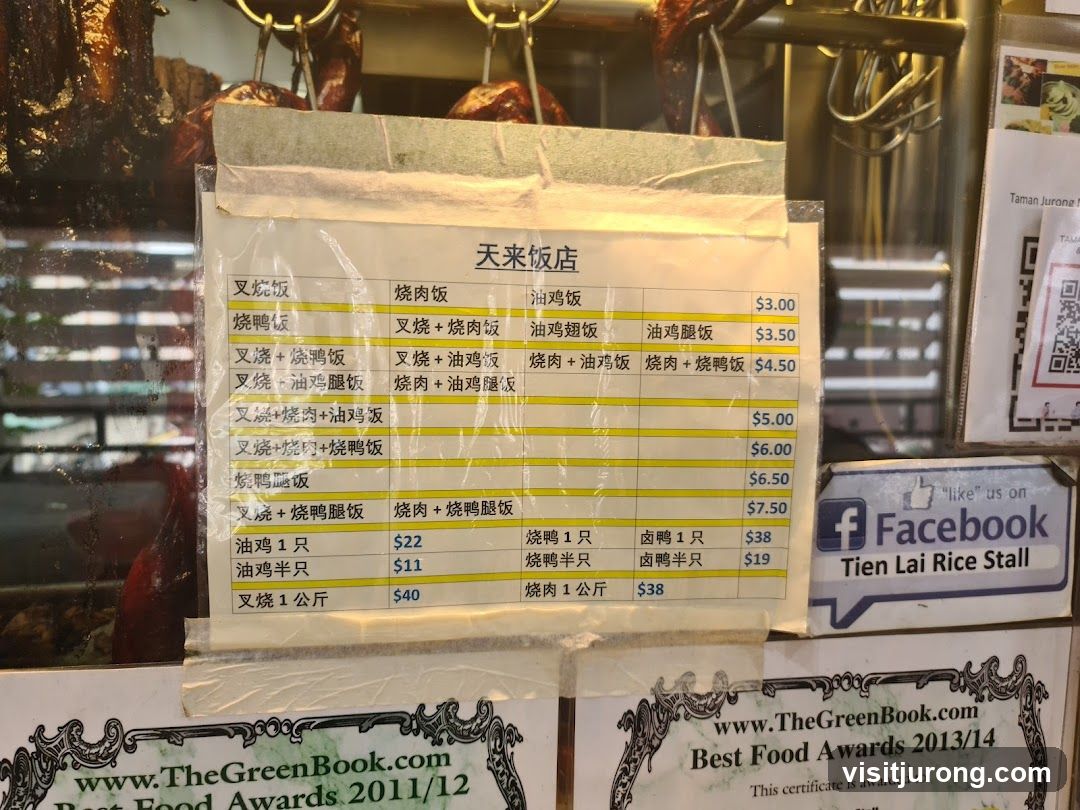 天来饭店
叉烧饭 烧肉饭 油鸡饭 $3.00
烧鸭饭 叉烧 + 烧肉饭 油鸡翅饭 油鸡腿饭 $3.50
叉烧 + 烧鸭饭 叉烧 + 油鸡饭 烧肉 + 油鸡饭 烧肉 + 烧鸭饭 $4.50
叉烧 + 油鸡腿饭 烧肉 + 油鸡腿饭
叉烧+烧肉+油鸡饭 $5.00
叉烧+烧肉+烧鸭饭 $6.00
烧鸭腿饭 $6.50
叉烧 + 烧鸭腿饭 烧肉 + 烧鸭腿饭 $7.50
油鸡 1 只 $22 烧鸭 1 只 卤鸭 1 只 $38
油鸡半只 $11 烧鸭半只 卤鸭半只 $19
叉烧 1 公斤 $40 烧肉 1 公斤 $38
Taman Jurong
"like" us on
Facebook
Tien Lai Rice Stall
www.TheGreenBook.com
Best Food Awards 2011/12
www.TheGreenBook.com
Best Food Awards 2013/14
This certificate is
visitjurong.com